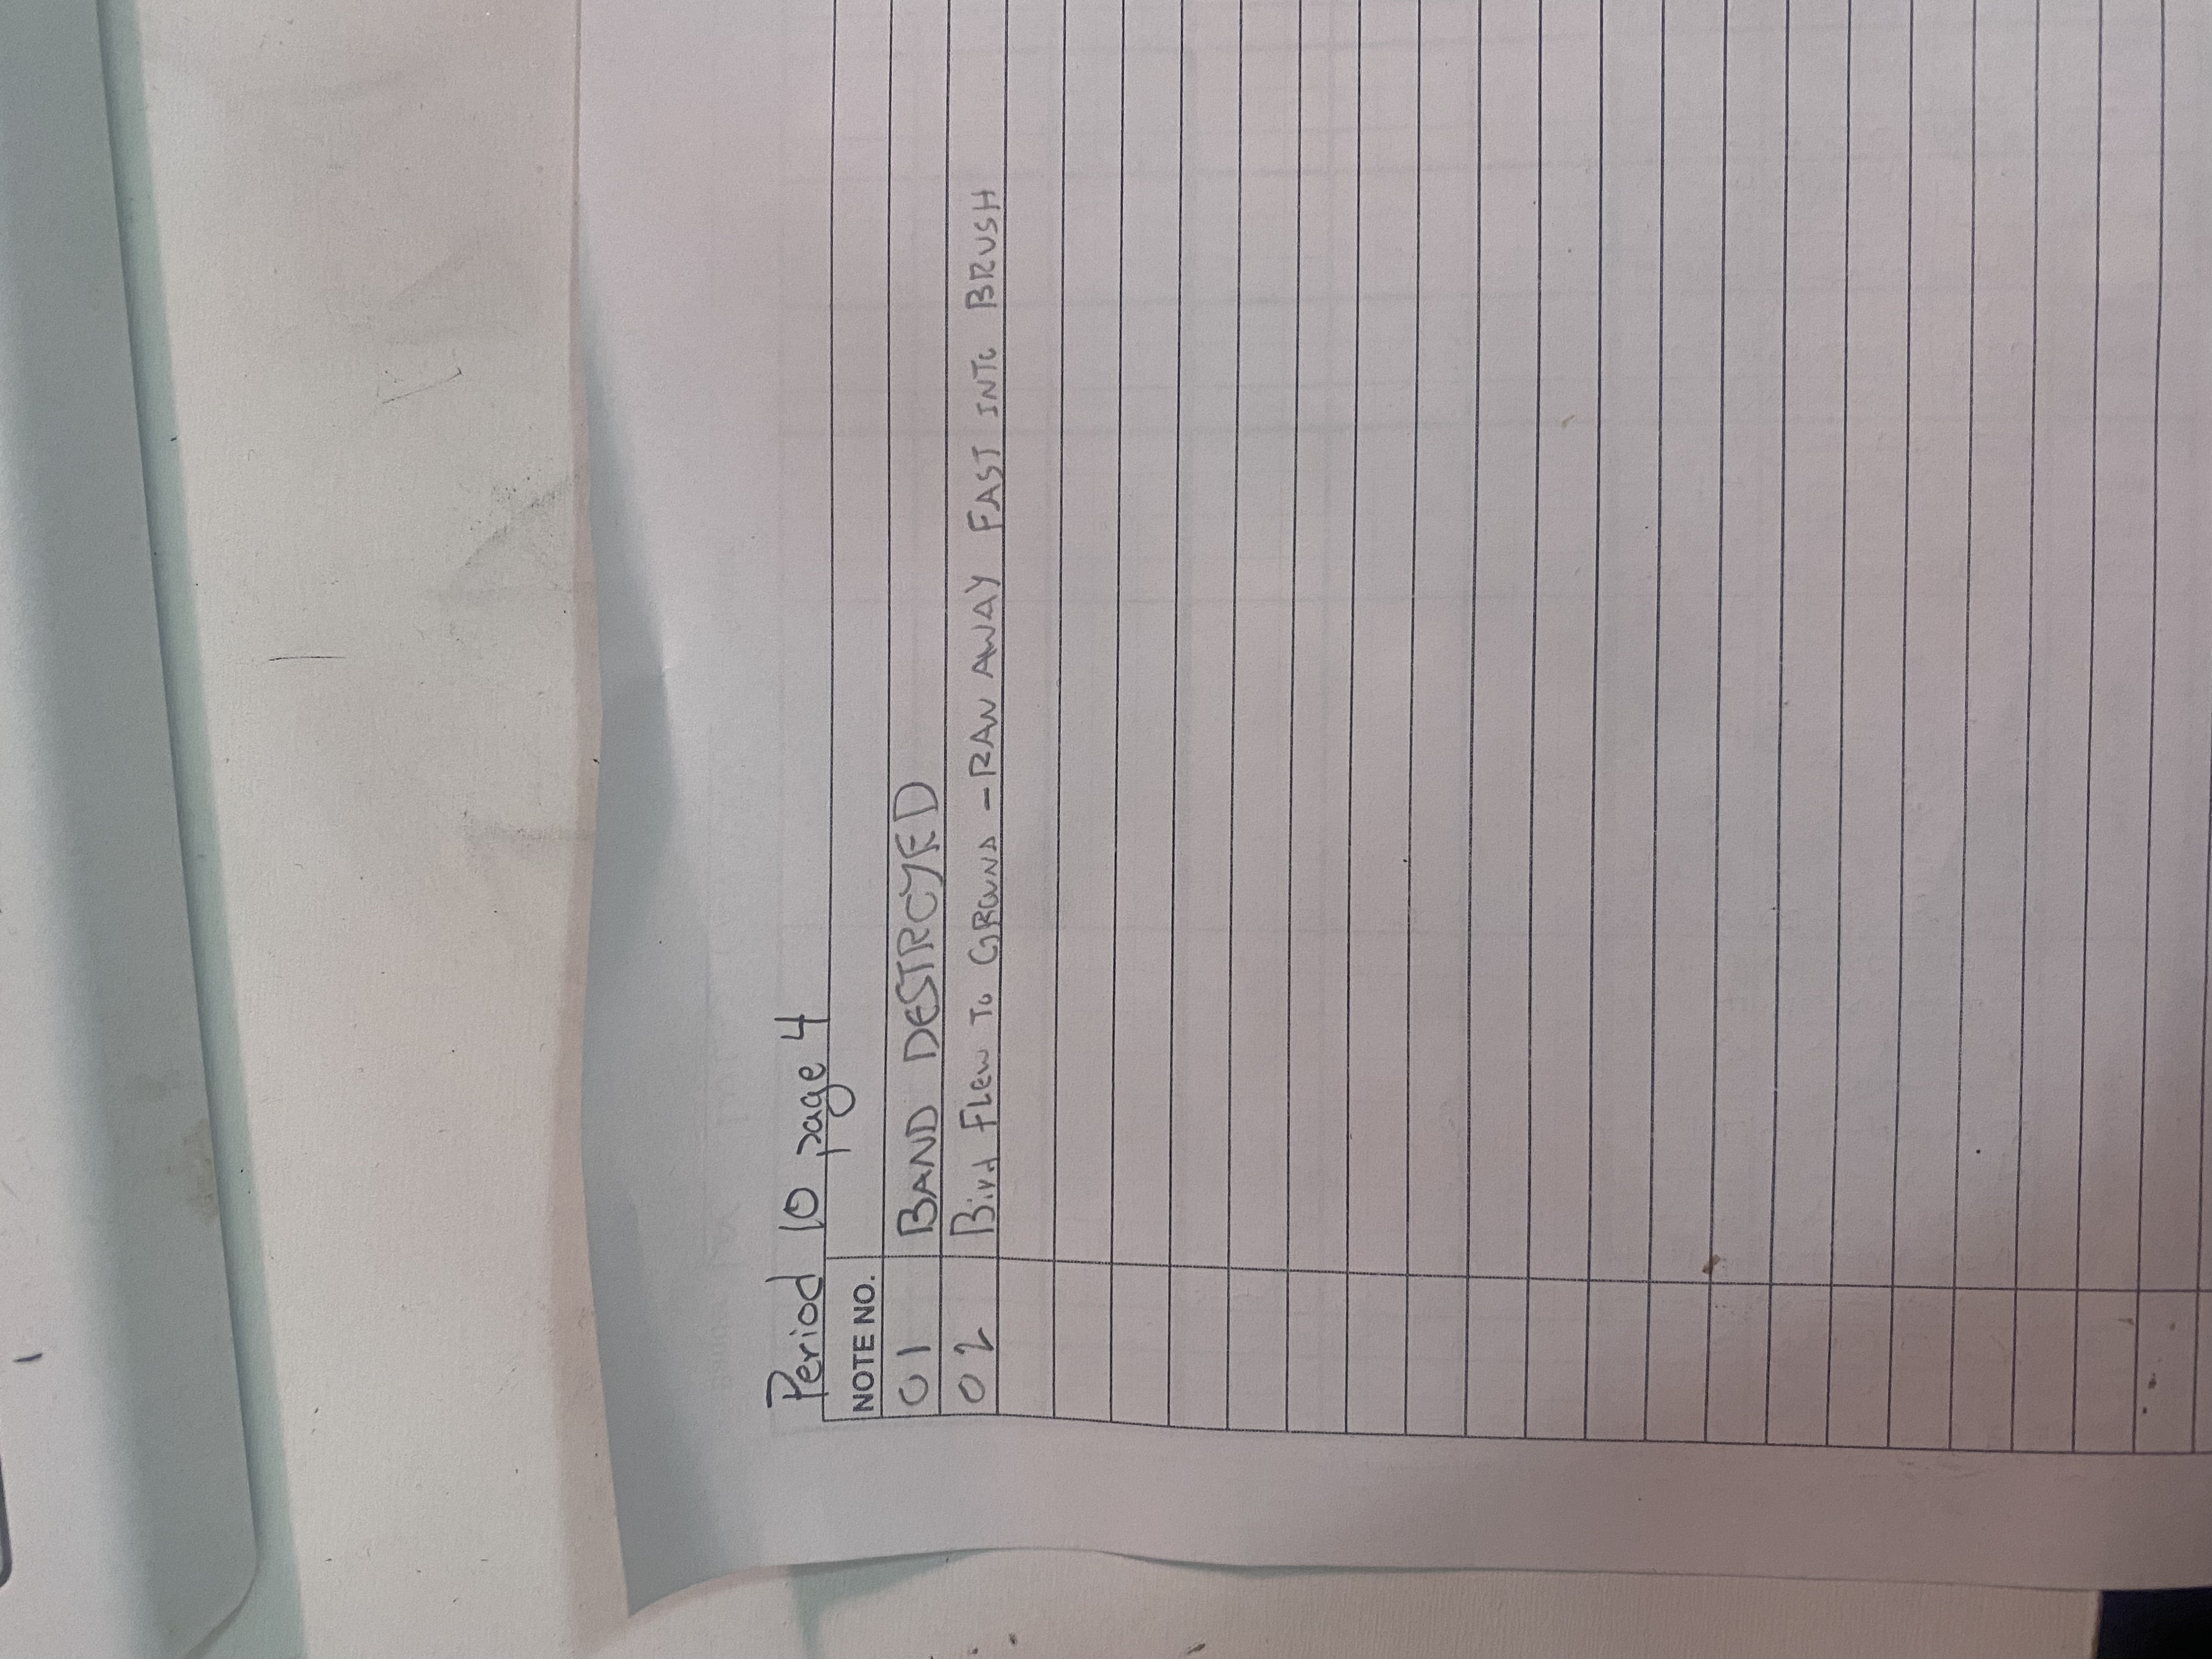 Period 10 page 4
NOTE NO.
01 BAND DESTROYED
02 Bird FLEW TO GROUND - RAN AWAY FAST INTO BRUSH